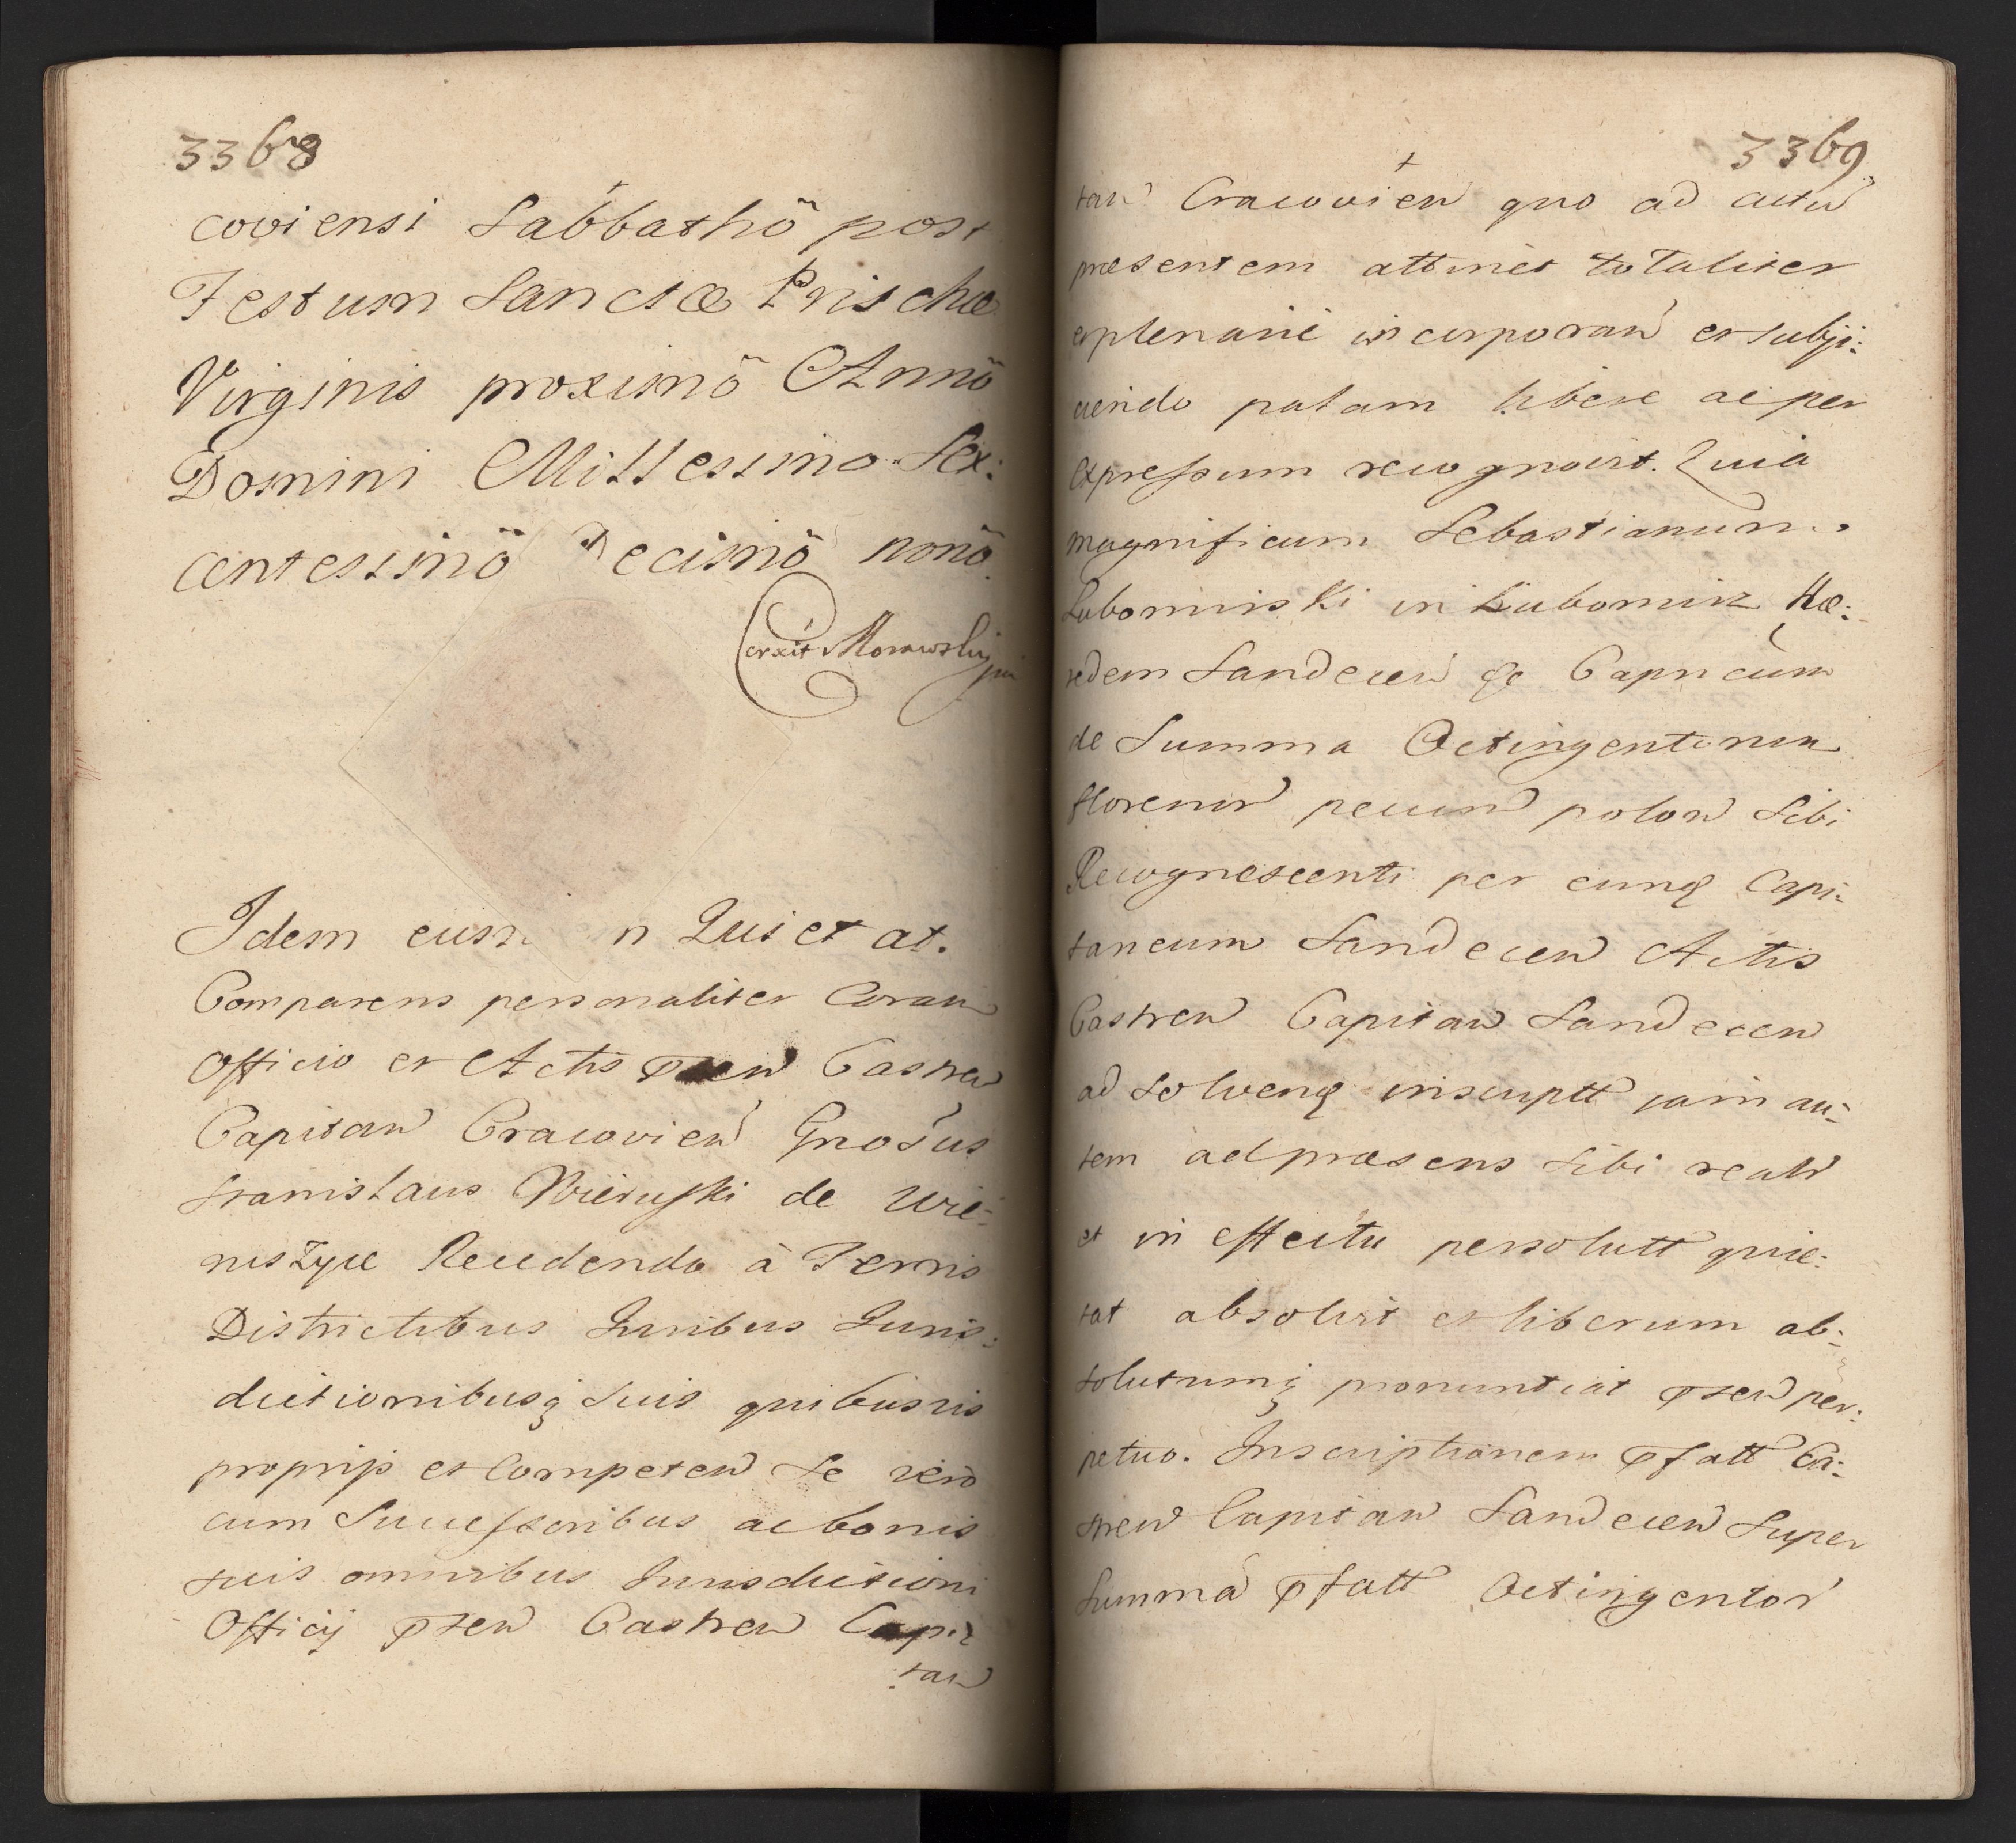 3368
coviensi Sabbathō post
Festum Sanctæ Prischæ
Virginis proximō Annō
Domini Millessimo Sex:
centessimō Decimō nonō.
Idem eu n Quietat.
Comparens personaliter Coram
Officio et Actis Castren
Capitan Cracovien Gnosus
Stanislaus Wieruski de Wie:
rustyce Recedendo à Terris
Districtibus Juribus Juris:
dictionibusq suis quibusvis
proprijs et Competen se vero
cum Successoribus ac bonis
suis omnibus Jurisdictioni
Officij pnsen Castren Capi:
tan
3369
tan Cracovien quo ad actum
præsentem attinet totaliter
et plenarie incorporan et subji:
ciendo palam libere ac per
Expressum recognovit. Quia
magnificum Sebastianum
Lubomirski in Lubomirz Hæ:
redem Sandecen &c Capneum
de Summa Octingentorum
florenor pecun polon Sibi
Recognoscenti per eunq Capi:
taneum Sandecen Actis
Castren Capitan Sandecen
ad solvenq inscriptt jam au:
tem ad præsens sibi realr
et in effectu persolutt quie:
tat absolvit et liberum ab:
solutumq pronuntiat pnsen per:
petuo. Inscriptionem pfatt Ca:
stren Capitan Sandecen Super
Summa pfatt Octingentor